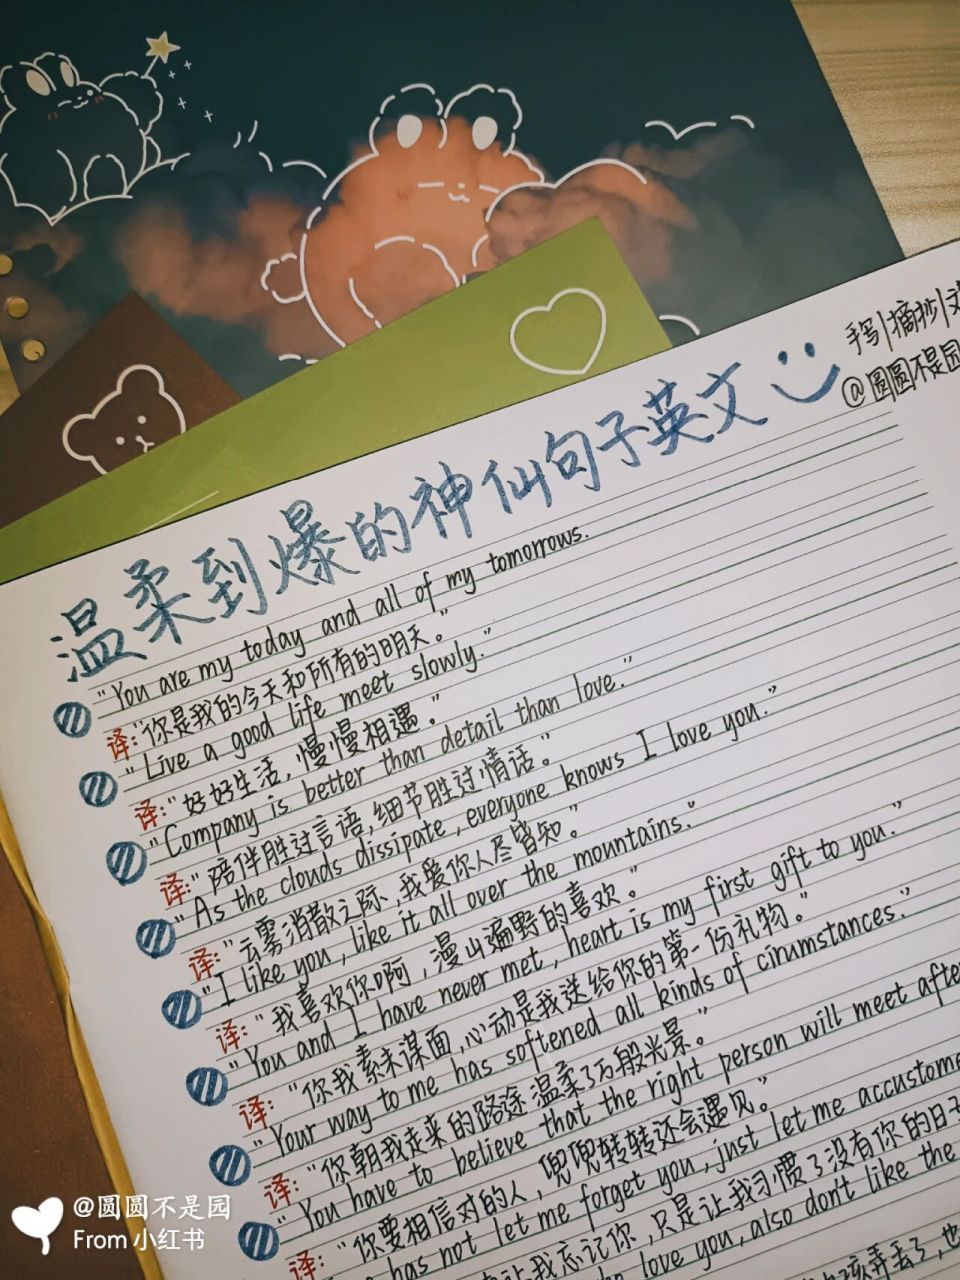 手写|摘抄|文
@圆圆不是园
温柔到爆的神仙句子英文
"You are my today and all of my tomorrows.
译:"你是我的今天和所有的明天。"
"Live a good life meet slowly."
译:"好好生活,慢慢相遇。"
"Company is better than detail than love."
译:"陪伴胜过言语,细节胜过情话。"
"As the clouds dissipate, everyone knows I love you."
译:"云雾消散之际,我爱你人尽皆知。"
"I like you, like it all over the mountains."
译:"我喜欢你啊,漫山遍野的喜欢。"
"You and I have never met, heart is my first gift to you."
译:"你我素未谋面,心动是我送给你的第一份礼物。"
"Your way to me has softened all kinds of cirumstances."
译:"你朝我走来的路途温柔了万般光景。"
"You have to believe that the right person will meet after
译:"你要相信对的人,兜兜转转还会遇见。"
has not let me forget you, just let me accustome
译:让我忘记你,只是让我习惯了没有你的日子
love you, also don't like the
孩弄丢了,也
@圆圆不是园
From 小红书